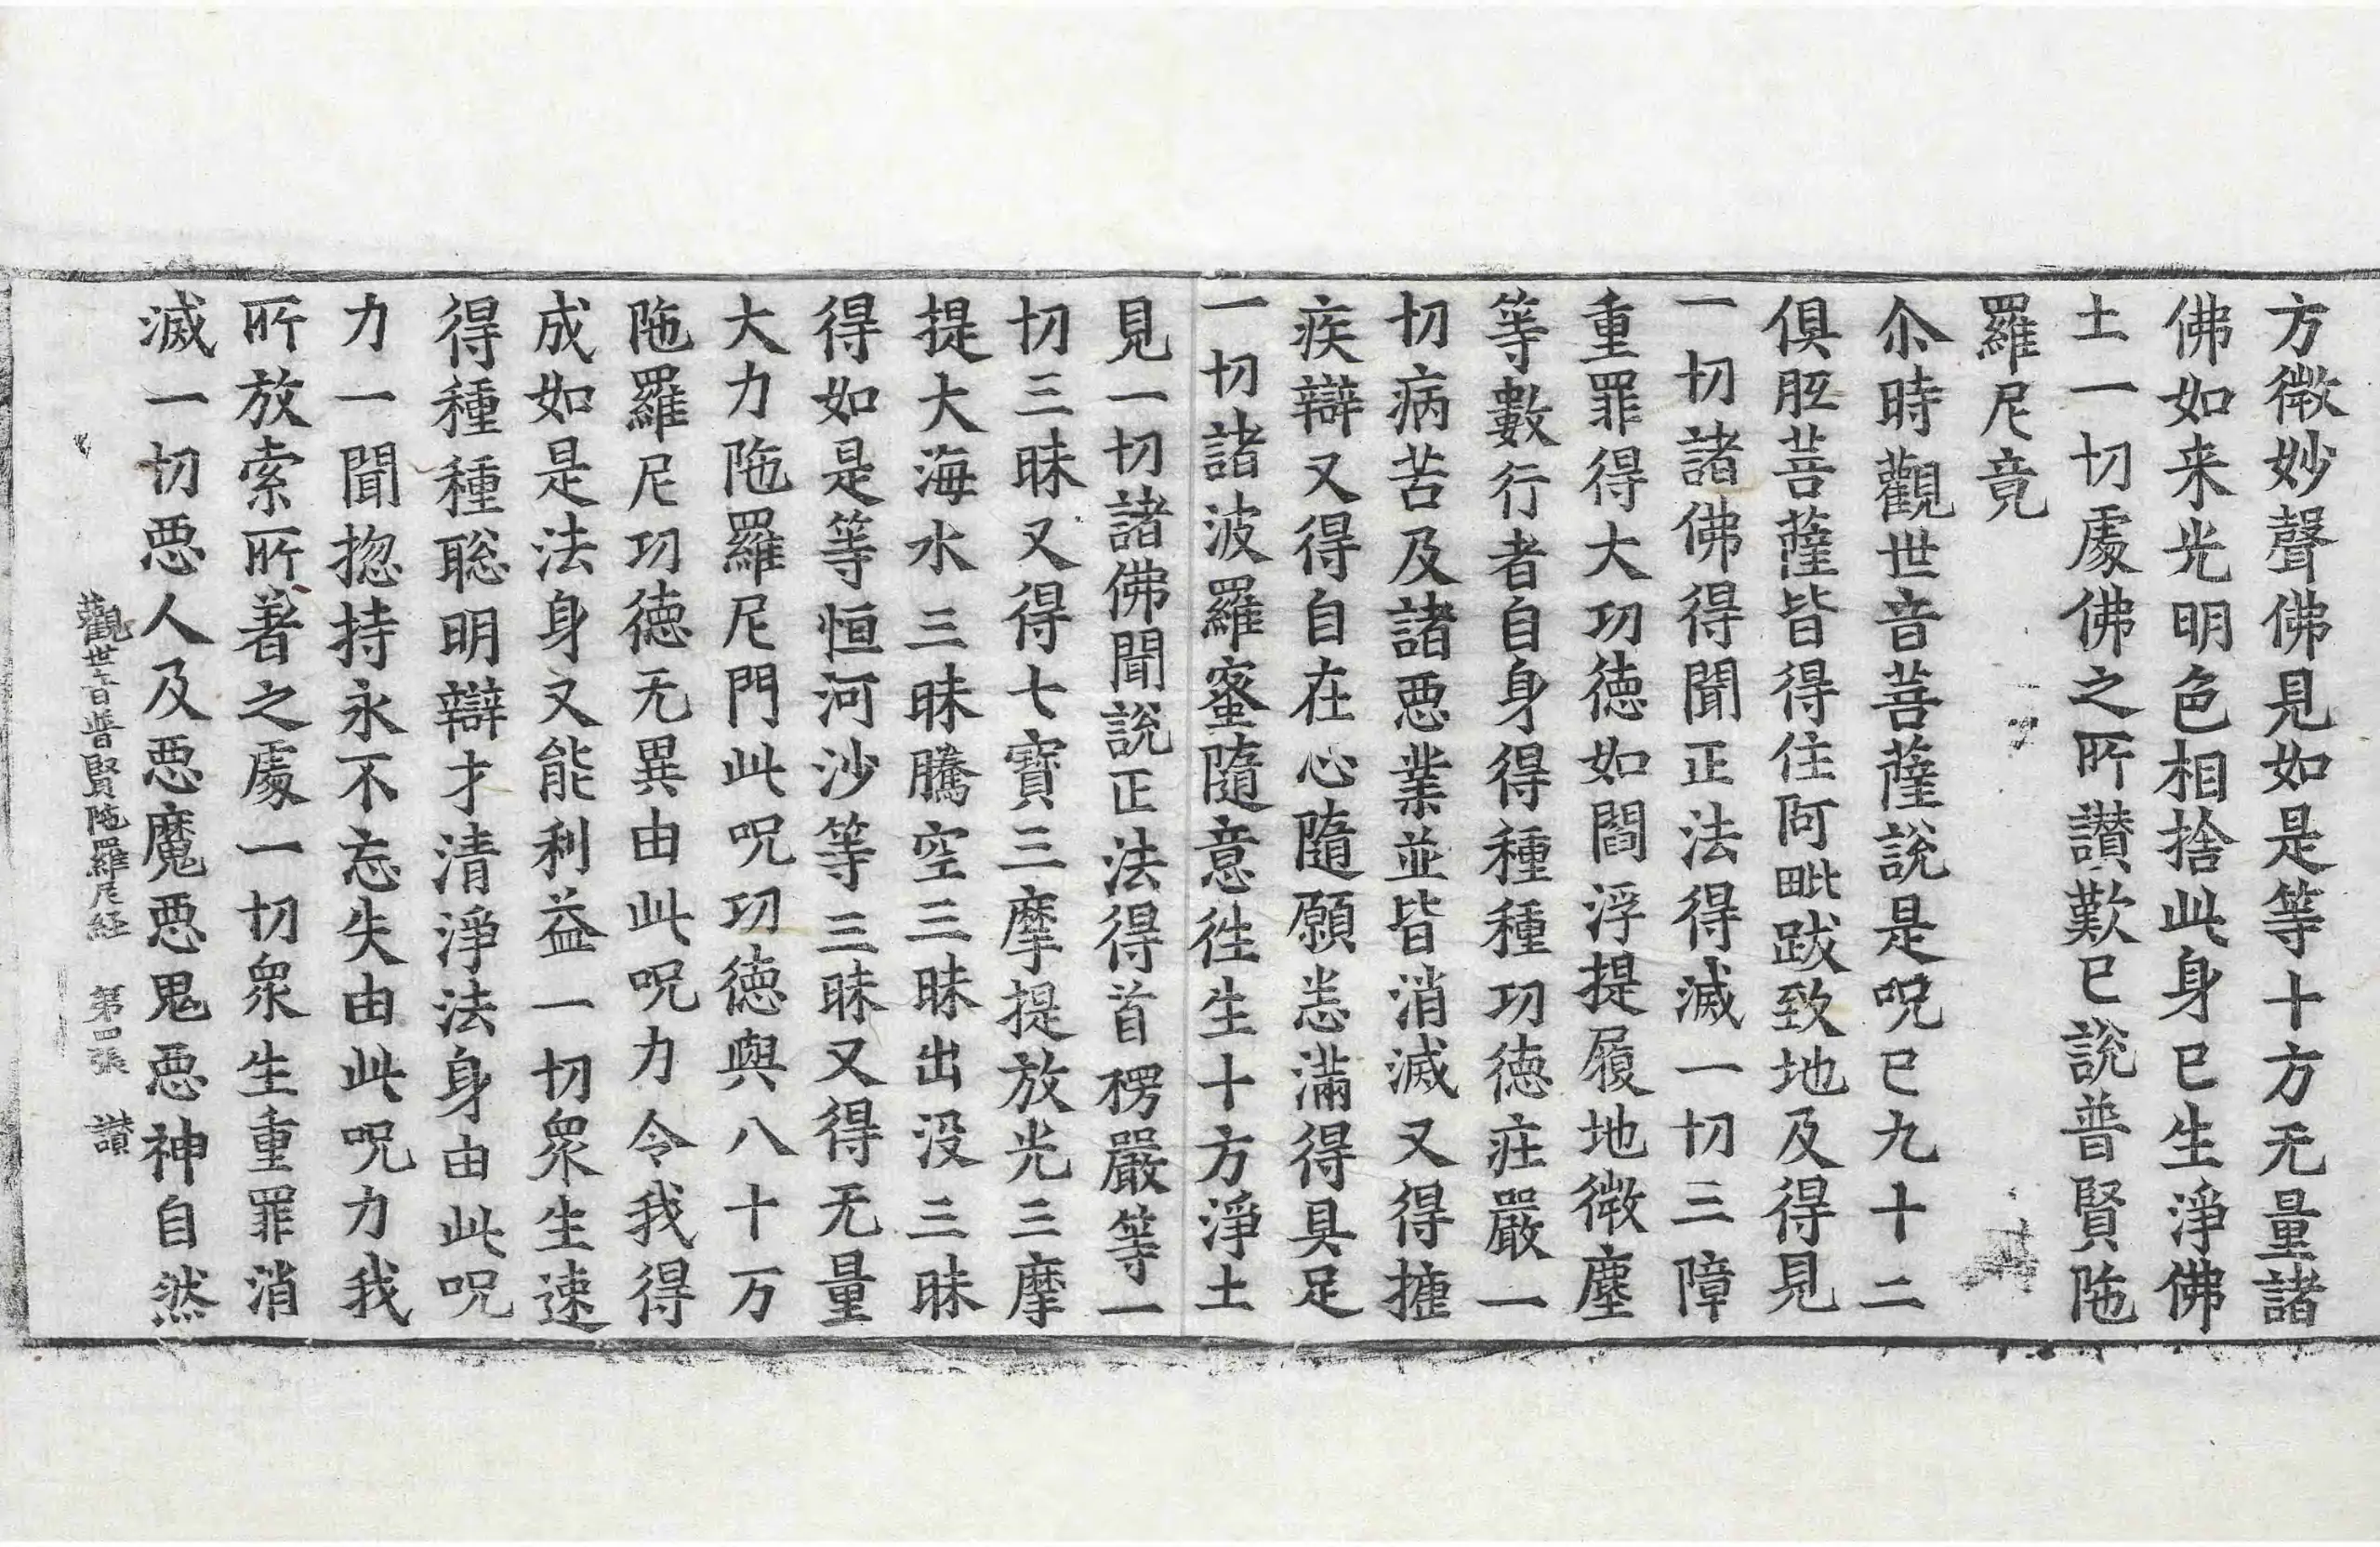 方微妙聲佛見如是等十方无量諸
佛如来光明色相捨此身已生淨佛
土一切處佛之所讃歎已說普賢陁
羅尼竟
尒時觀世音菩薩說是呪已九十二
俱胝菩薩皆得住阿毗跋致地及得見
一切諸佛得聞正法得滅一切三障
重罪得大功德如閻浮提履地微塵
等數行者自身得種種功德莊嚴一
切病苦及諸惡業並皆消滅又得摠
疾辯又得自在心隨願悉滿得具足
一切諸波羅蜜隨意往生十方淨土
見一切諸佛聞說正法得首楞嚴等一
切三昧又得七寶三摩提放光三摩
提大海水三昧騰空三昧出没三昧
得如是等恒河沙等三昧又得无量
大力陁羅尼門此呪功德與八十万
陁羅尼功德无異由此呪力令我得
成如是法身又能利益一切衆生速
得種種聡明辯才清淨法身由此呪
力一聞揔持永不忘失由此呪力我
所放索所著之處一切衆生重罪消
滅一切惡人及惡魔惡鬼惡神自然
觀世音普賢陁羅尼経 第四張 讃